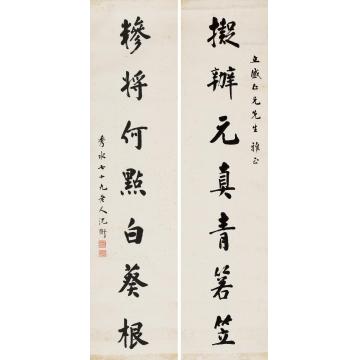 擬辦元真青箬笠
立盛仁兄先生 雅正
糝將何點白葵根
秀水七十九老人沈衛